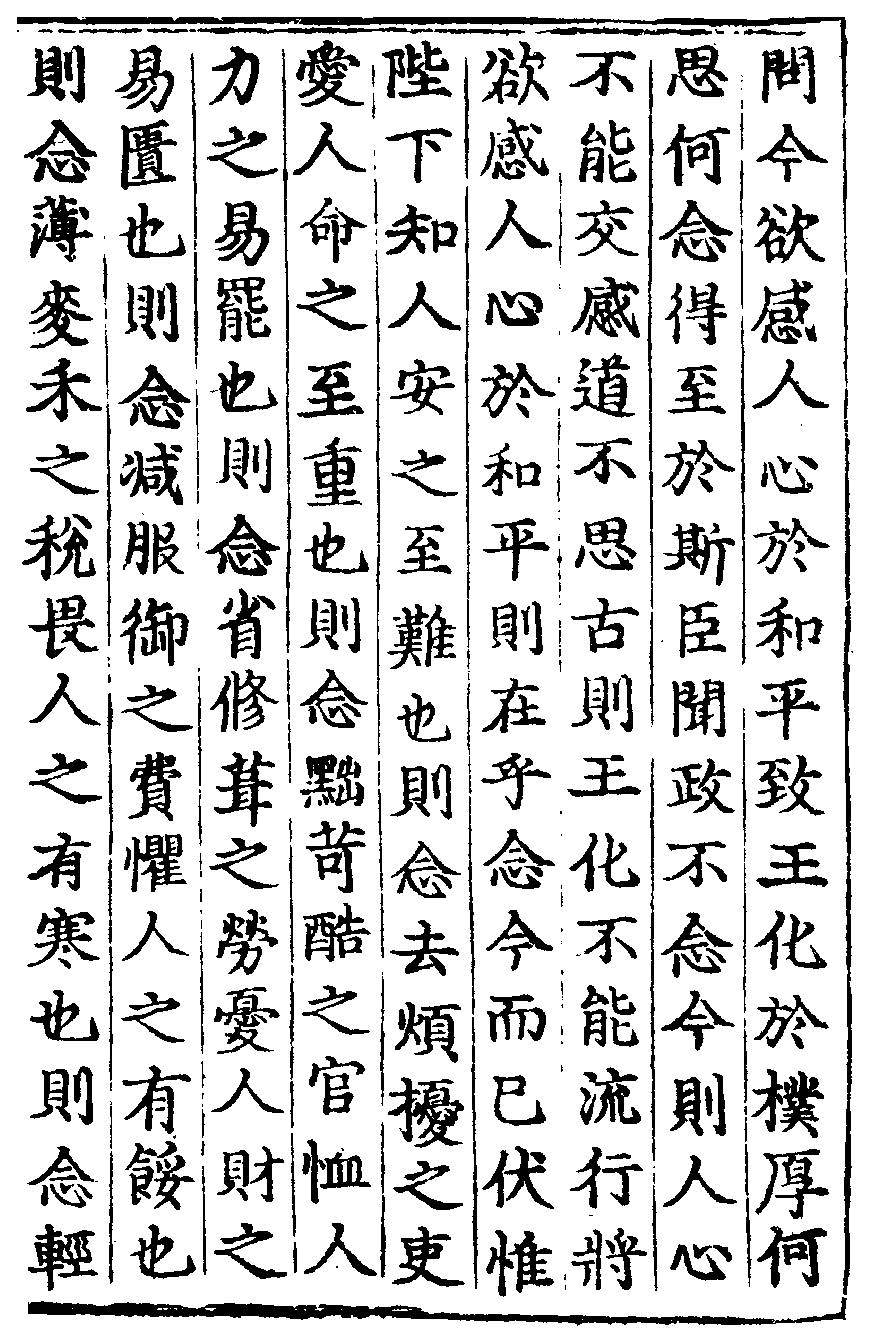 問今欲感人心於和平致王化於樸厚何
思何念得至於斯臣聞政不念今則人心
不能交感道不思古則王化不能流行將
欲感人心於和平則在乎念今而已伏惟
陛下知人安之至難也則念去煩擾之吏
愛人命之至重也則念黜苛酷之官恤人
力之易罷也則念省修葺之勞憂人財之
易匱也則念减服御之費懼人之有餒也
則念薄麥禾之稅畏人之有寒也則念輕